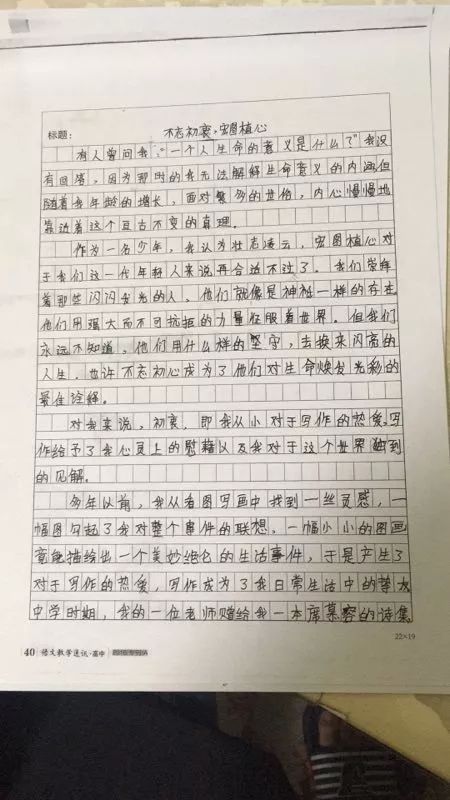 标题： 不忘初衷，宏图植心
有人曾问我："一个人生命的意义是什么？"我没
有回答，因为那时的我无法解释生命意义的内涵但
随着我年龄的增长，面对繁多的世俗，内心慢慢地
靠近着这个亘古不变的真理。
作为一名少年，我认为壮志凌云，宏图植心对
于我们这一代年轻人来说再合适不过了。我们崇拜
着那些闪闪发光的人，他们就像是神祗一样的存在
他们用强大而不可抗拒的力量征服着世界。但我们
永远不知道，他们用什么样的坚守，去换来闪亮的
人生，也许不忘初心成为了他们对生命焕发光彩的
最佳诠释。
对我来说，初衷，即我从小对于写作的热爱，写
作给予了我心灵上的慰藉以及我对于这个世界独到
的见解。
多年以前，我从看图写画中找到一丝灵感，一
幅图勾起了我对整个事件的联想，一幅小小的图画
竟能描绘出一个美妙绝伦的生活事件，于是产生了
对于写作的热爱，写作成为了我日常生活中的
中学时期，我的一位老师赠给我一本席慕容的诗集
22×19
40 语文教学通讯·高中